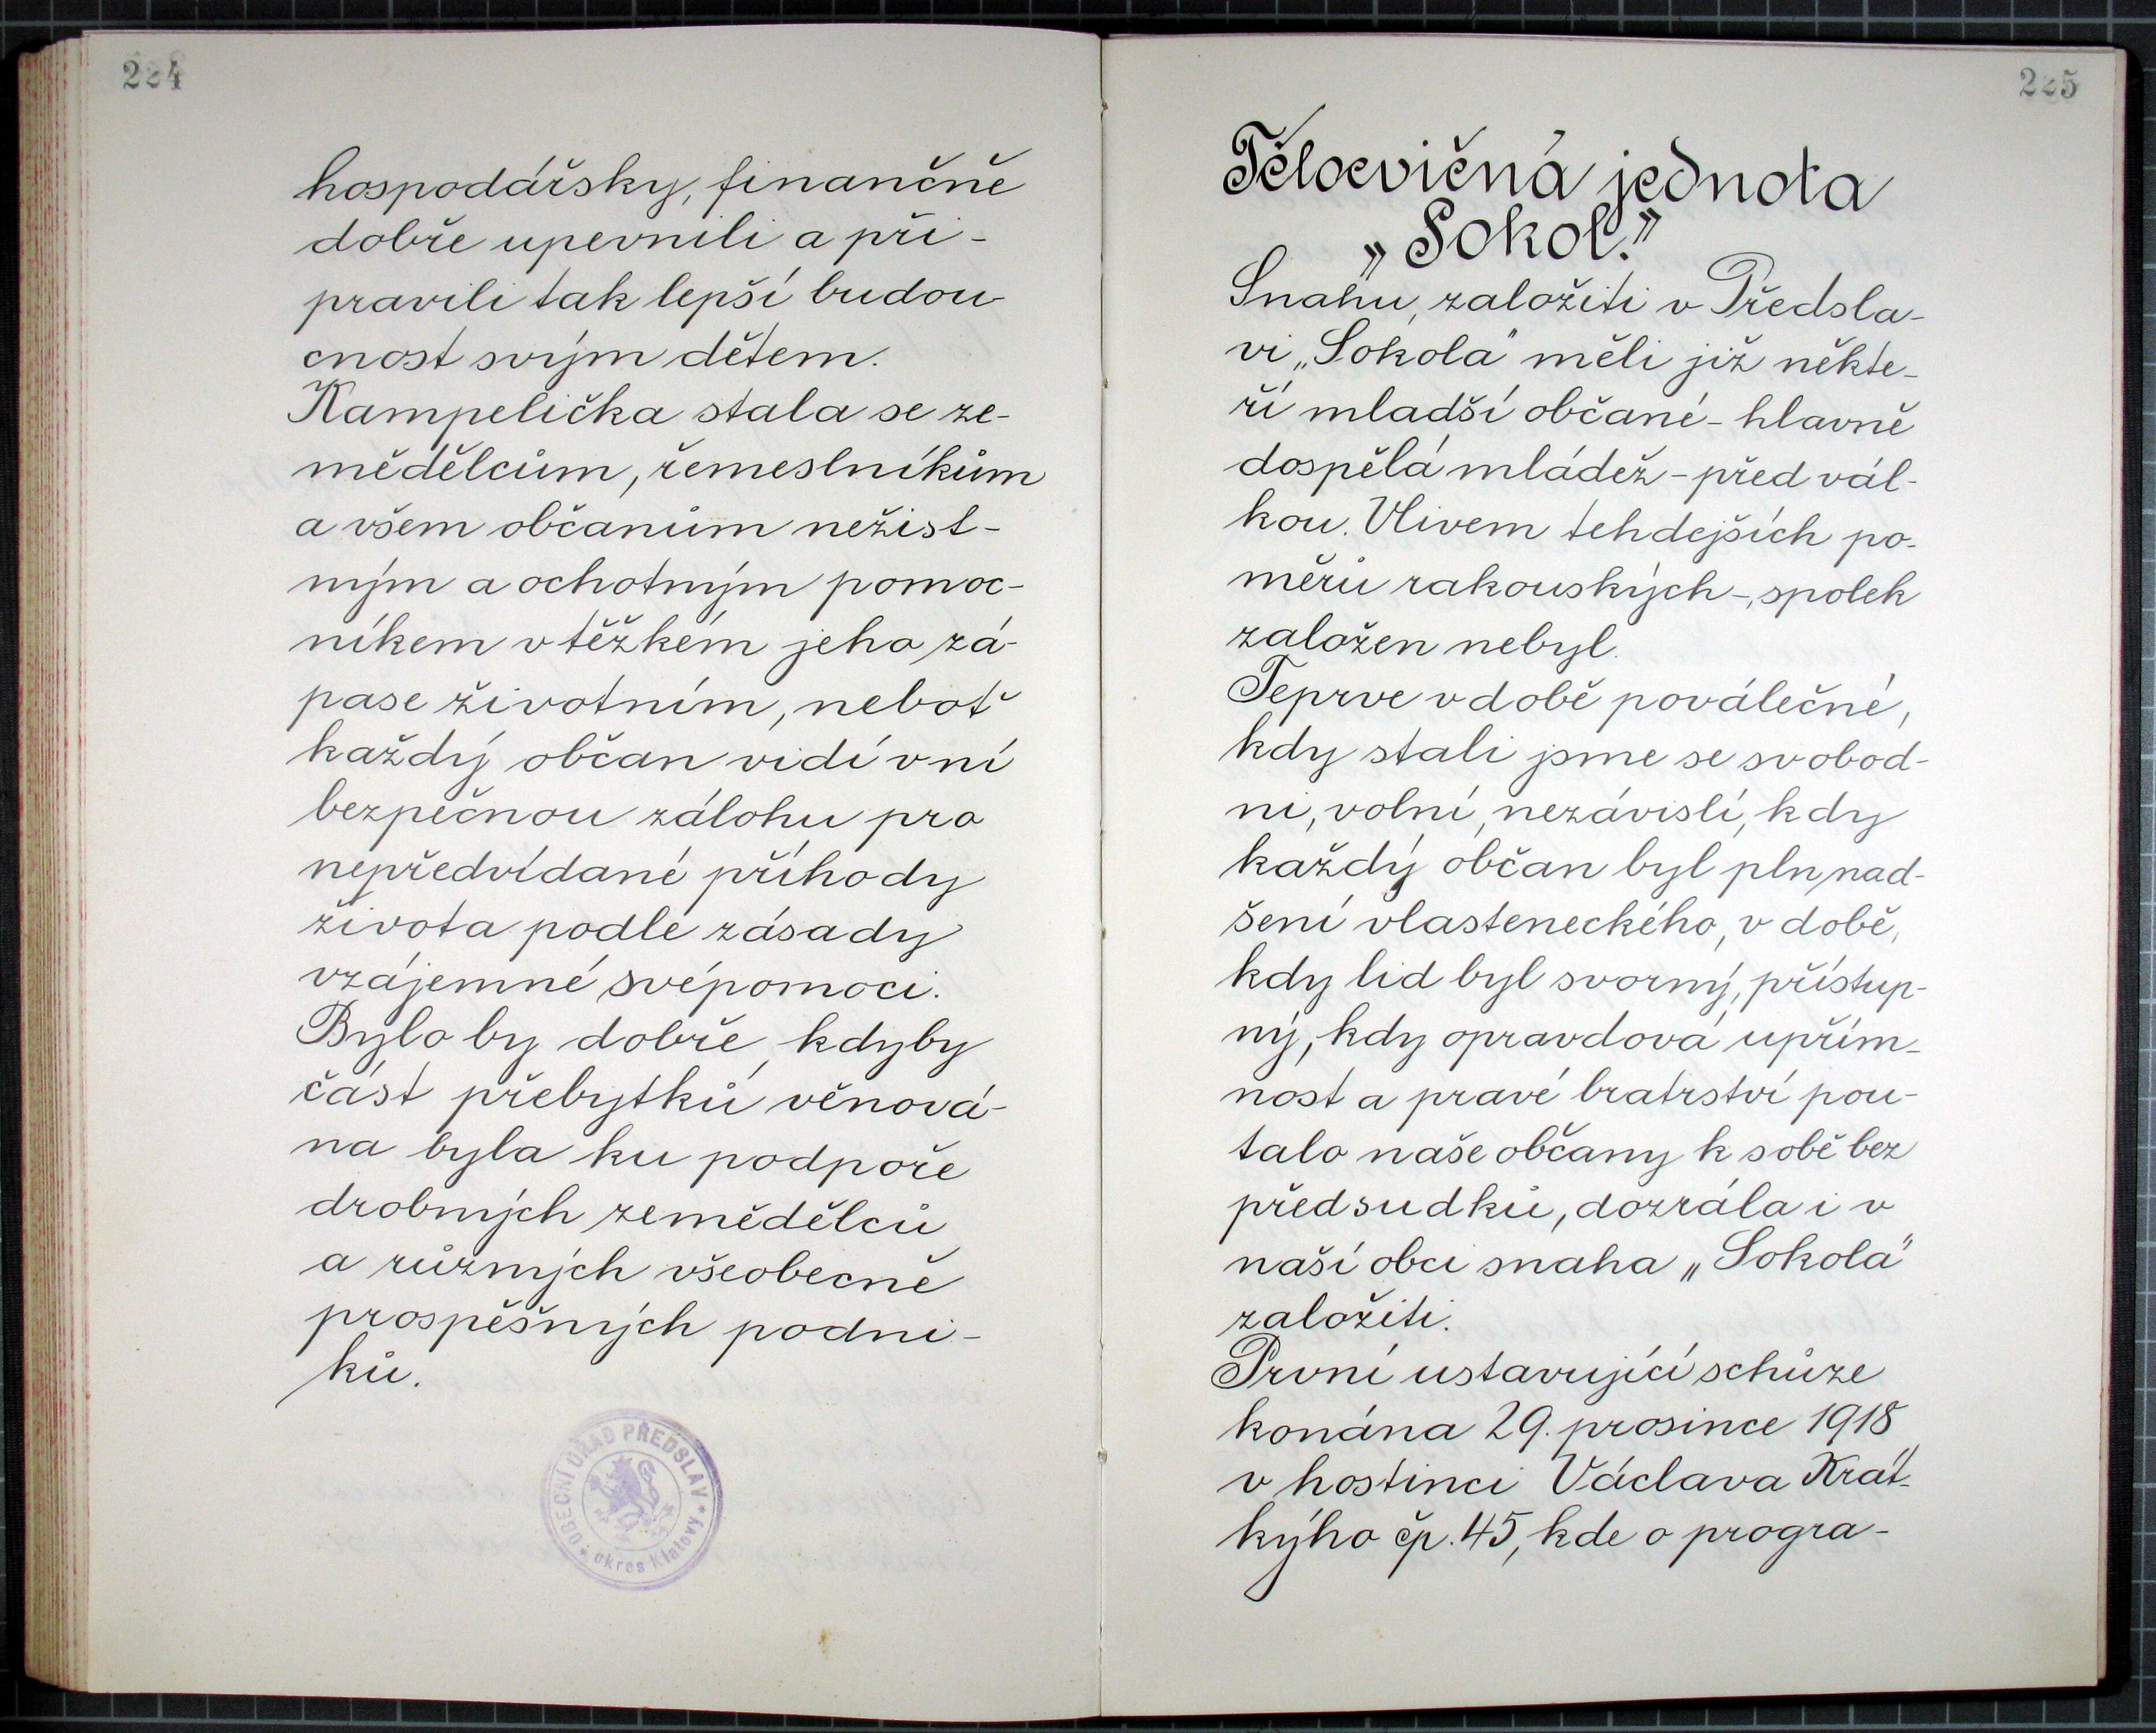 224
hospodářsky, finančně
dobře upevnili a při-
pravili tak lepší budou-
cnost svým dětem.
Kampelička stala se ze-
mědělcům, řemeslníkům
a všem občanům nežist-
ným a ochotným pomoc-
níkem v těžkém jeho zá-
pase životním, neboť
každý občan vidí v ní
bezpečnou zálohu pro
nepředvídané příhody
života podle zásady
vzájemné svépomoci.
Bylo by dobře, kdyby
část přebytků věnová-
na byla ku podpoře
drobných zemědělců
a různých všeobecně
prospěšných podni-
ků.
OBECNÍ ÚŘAD PŘEDSLAV
okres Klatovy
225
Tělocvičná jednota
„Sokol."
Snahu, založiti v Předsla-
vi „Sokola" měli již někte-
ří mladší občané - hlavně
dospělá mládež - před vál-
kou. Vlivem tehdejších po-
měrů rakouských -, spolek
založen nebyl.
Teprve v době poválečné,
kdy stali jsme se svobod-
ni, volní, nezávislí, kdy
každý občan byl pln nad-
šení vlasteneckého, v době,
kdy lid byl svorný, přístup-
ný, kdy opravdová upřím-
nost a pravé bratrství pou-
talo naše občany k sobě bez
předsudků, dozrála i v
naší obci snaha „Sokola"
založiti.
První ustavující schůze
konána 29. prosince 1918
v hostinci Václava Krát-
kýho čp. 45, kde o progra-